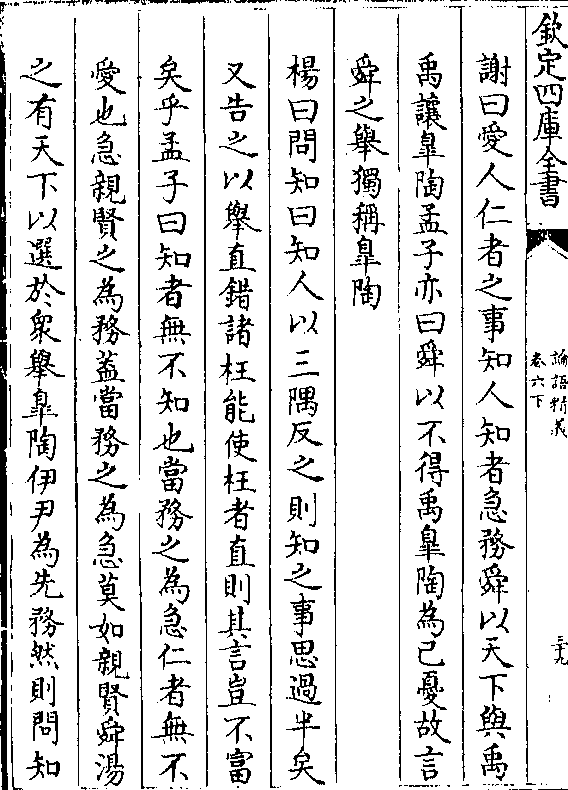 欽定四庫全書
論語精義
卷六下
三十九
謝曰愛人仁者之事知人知者急務舜以天下與禹
禹讓臯陶孟子亦曰舜以不得禹臯陶為己憂故言
舜之舉獨稱臯陶
楊曰問知曰知人以三隅反之則知之事思過半矣
又告之以舉直錯諸枉能使枉者直則其言豈不富
矣乎孟子曰知者無不知也當務之為急仁者無不
愛也急親賢之為務葢當務之為急莫如親賢舜湯
之有天下以選於衆舉臯陶伊尹為先務然則問知